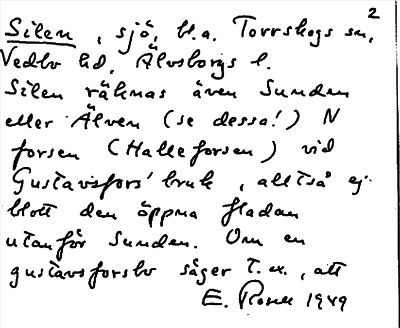 2
Silen, sjö, bl.a. Torrskogs sn,
Vedbo hd, Älvsborgs l.
Silen räknas även Sunden
eller Älven (se dessa!) N
forsen (Halleforsen) vid
Gustavsfors' bruk, alltså ej
blott den öppna fladan
utanför Sunden. Om en
gustavsforsbo säger t.ex., att
E. Rosell 1949